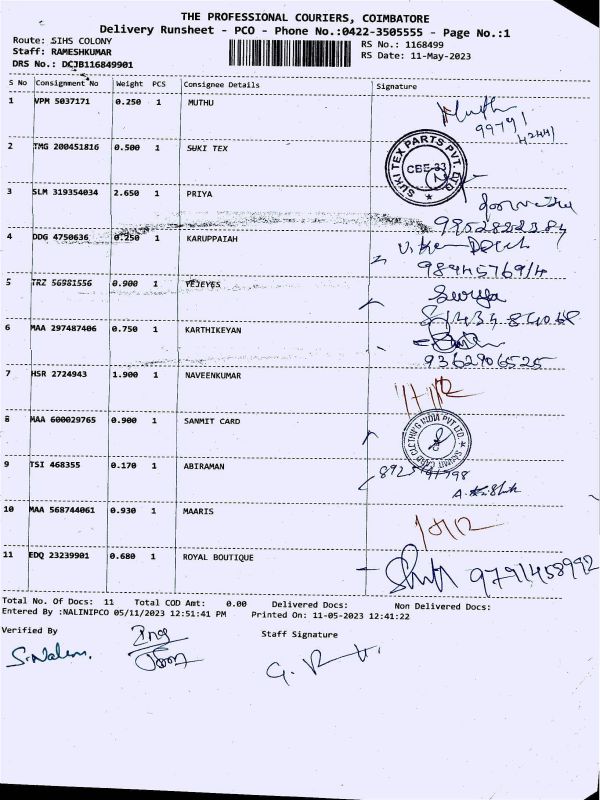 THE PROFESSIONAL COURIERS, COIMBATORE
Delivery Runsheet - PCO - Phone No.:0422-3505555 - Page No.:1
Route: SIHS COLONY
RS No.: 1168499
Staff: RAMESHKUMAR
RS Date: 11-May-2023
DRS No.: DCJB116849901
S No Consignment No Weight PCS Consignee Details Signature
1 VPM 5037171 0.250 1 MUTHU
2 TMG 200451816 0.500 1 SUKI TEX
SUKI TEX PARTS PVT. LTD. CBE-33
3 SLM 319354034 2.650 1 PRIYA
4 DDG 4750636 0.250 1 KARUPPAIAH
5 TRZ 56981556 0.900 1 YEJEYES
6 MAA 297487406 0.750 1 KARTHIKEYAN
9362906525
7 HSR 2724943 1.900 1 NAVEENKUMAR
8 MAA 600029765 0.900 1 SANMIT CARD
9 TSI 468355 0.170 1 ABIRAMAN
10 MAA 568744061 0.930 1 MAARIS
11 EDQ 23239901 0.680 1 ROYAL BOUTIQUE
9791458992
Total No. Of Docs: 11 Total COD Amt: 0.00 Delivered Docs: Non Delivered Docs:
Entered By :NALINIPCO 05/11/2023 12:51:41 PM Printed On: 11-05-2023 12:41:22
Verified By
Staff Signature
S.Nalini.